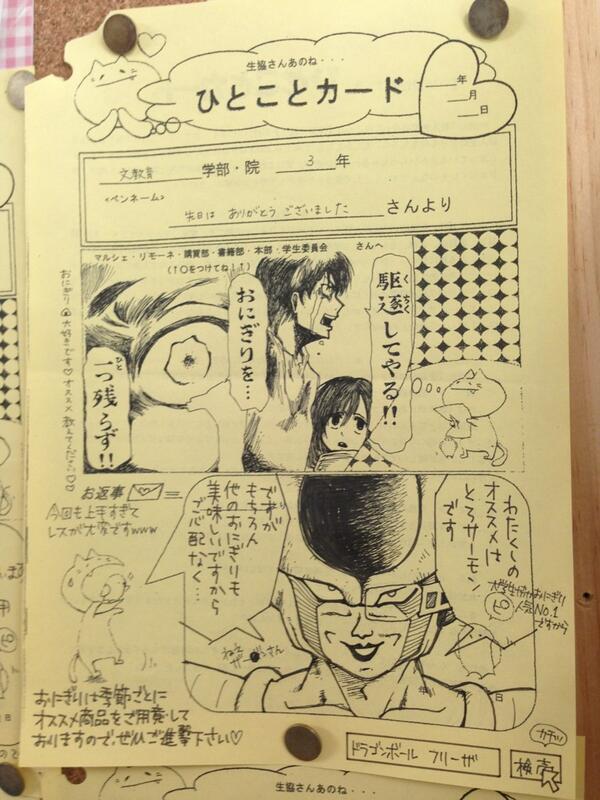 生協さんあのね・・・
ひとことカード
年
月
日
文教育 学部・院 3 年
<ペンネーム>
先日は ありがとう ございました さんより
マルシェ・リモーネ・購買部・書籍部・本部・学生委員会 さんへ
(↑○をつけてね!↑)
駆逐してやる!!
くちく
おにぎりを…
一つ残らず!!
ひと
おにぎり大好きです♡オススメ教えてください♡
お返事
今回も上手すぎて
レスが大変ですwww
わたくしの
オススメは
とろサーモン
です
大学生協おにぎり
人気No.1
ですから
ですが
もちろん
他のおにぎりも
美味しいですから
ご心配なく…
ねえ
ザーボンさん
年
月
日
おにぎりは季節ごとに
オススメ商品をご用意して
おりますので、ぜひご進撃下さい♡
ドラゴンボール フリーザ
検索
カチッ
生協さんあのね・・・